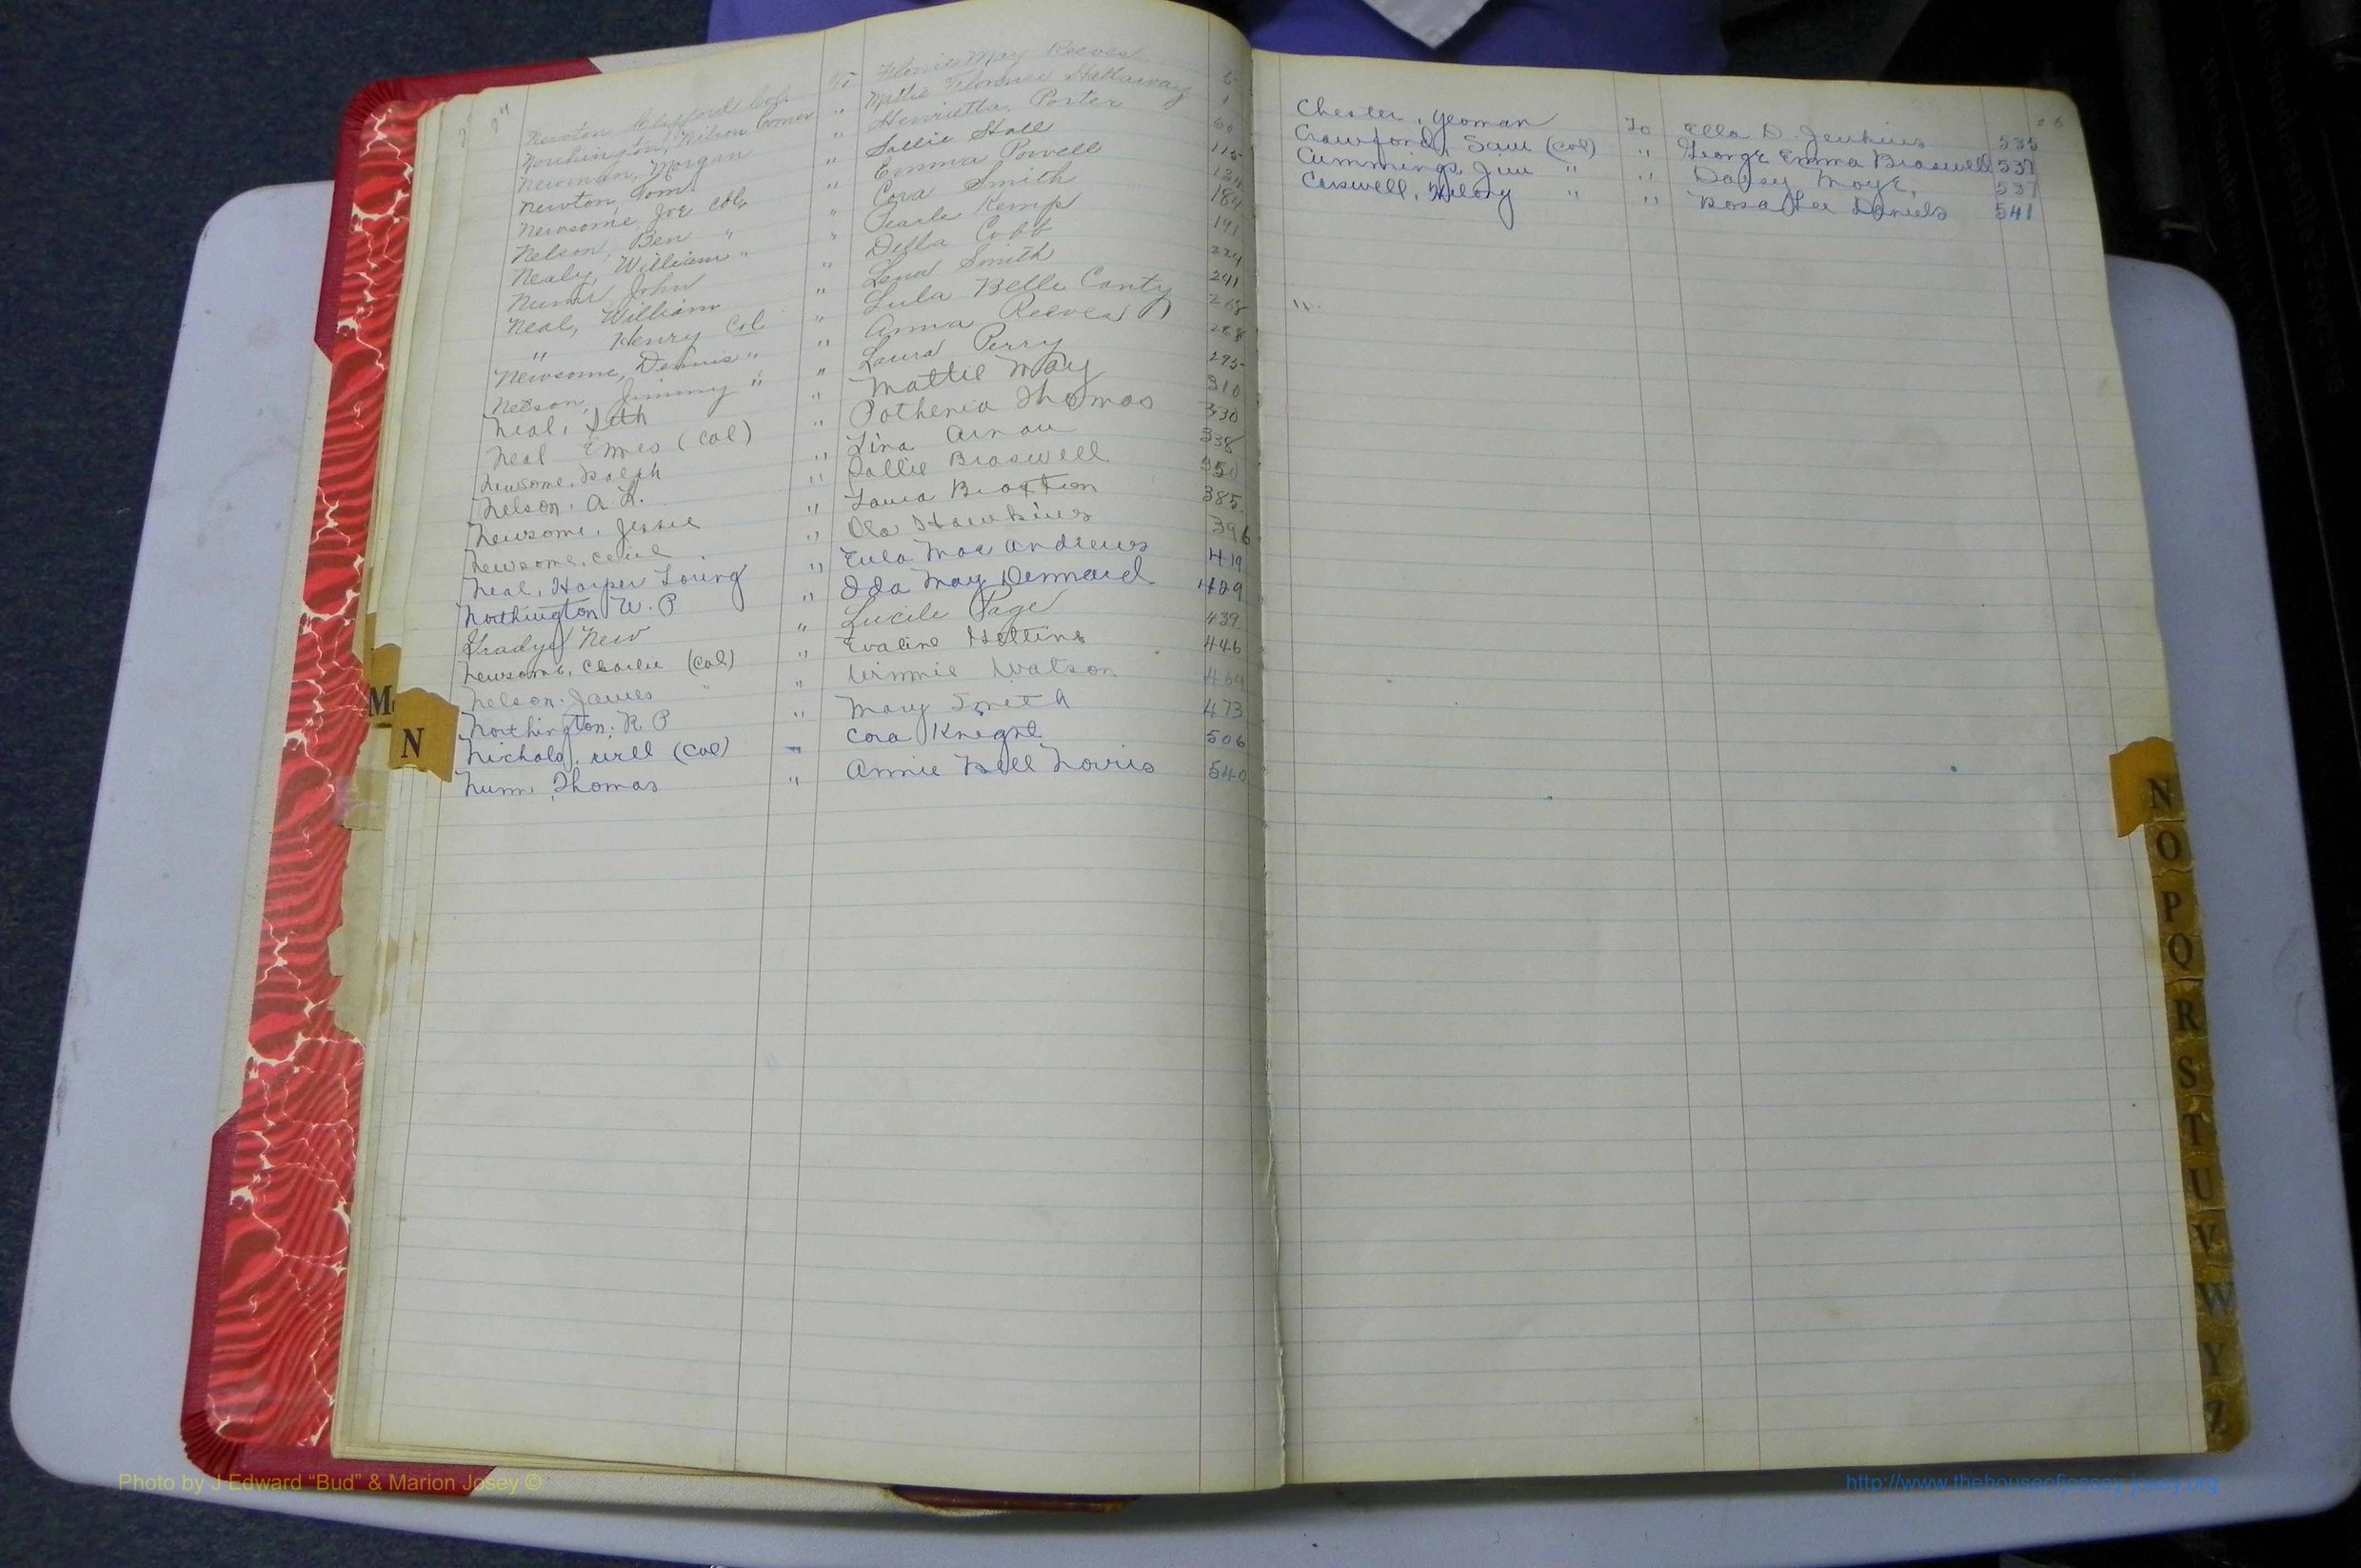 Newton, Clifford Col. To Flonie May Reeves 5
Northington, Wilson Comer " Mattie Florence Hattaway 1
Newman, Morgan " Henrietta Porter 60
Newton, Tom " Sallie Stall 115
Newsome, Joe Col. " Emma Powell 134
Nelson, Ben " " Cora Smith 184
Nealy, William " " Pearle Kemp 191
John " Della Cobb 224
Neal, William " Lena Smith 241
" Henry Col " Lula Belle Canty 268
Newsome, Dennis " " Anna Reeves 288
Nelson, Jimmy " " Laura Perry 295
Neal, Seth " Mattie May 310
Neal (Col) " Pothenia Thomas 330
Newsome, Ralph " Lina 338
Nelson, A L. " Sallie Braswell 350
Newsome, Jessie " Laura Braxton 385
Newsome, Cecil " Ola Hawkins 396
Neal, Harper Loring " Eula Mae Andrews 419
Northington W. P " Ida May Dennard 429
Grady New " Lucile Page 439
Newsome, Charlie (Col) " Evaline 446
Nelson, James " " Winnie Watson 469
Northington, R P " Mary Smith 473
Nichols, Will (Col) " Cora Knight 506
Nunn, Thomas " Annie Bell Norris 540
Chester, Yeoman To Ella D. Jenkins 535
Crawford, Sam (Col) " George Emma Braswell 537
Cummings, Jim " " Daisey Moye, 537
Carswell, " " Rosa Lee Daniels 541
M
N
N
O
P
Q
R
S
T
U
V
W
Y
Z
Photo by J Edward “Bud” & Marion Josey ©
http://www.thehouseofjossey-josey.org